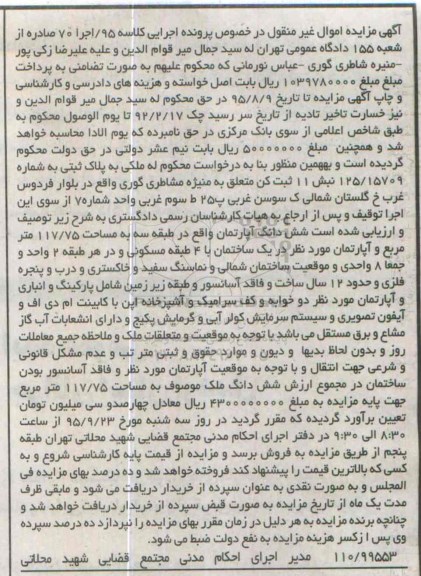 آگهی مزایده اموال غیر منقول در خصوص پرونده اجرایی کلاسه ۹۵/اجرا ۷۰ صادره از
شعبه ۱۵۵ دادگاه عمومی تهران له سید جمال میر قوام الدین و علیه علیرضا زکی پور
-منیره شاطری گوری -عباس نورمانی که محکوم علیهم به صورت تضامنی به پرداخت
مبلغ مبلغ ۱۰۳۹۷۸۰۰۰۰ ریال بابت اصل خواسته و هزینه های دادرسی و کارشناسی
و چاپ آگهی مزایده تا تاریخ ۹۵/۸/۹ در حق محکوم له سید جمال میر قوام الدین و
نیز خسارت تاخیر تادیه از تاریخ سر رسید چک ۹۲/۲/۱۷ تا یوم الوصول محکوم به
طبق شاخص اعلامی از سوی بانک مرکزی در حق نامبرده که یوم الادا محاسبه خواهد
شد و همچنین مبلغ ۵۰۰۰۰۰۰۰ ریال بابت نیم عشر دولتی در حق دولت محکوم
گردیده است و بههمین منظور بنا به درخواست محکوم له ملکی به پلاک ثبتی به شماره
۱۲۵/۱۵۷۰۹ نبش ۱۱ ثبت کن متعلق به منیژه مشاطری گوری واقع در بلوار فردوس
غرب خ گلستان شمالی ک سوسن غربی پ۲۵ ط سوم غربی واحد شماره۷ از سوی این
اجرا توقیف و پس از ارجاع به هیات کارشناسان رسمی دادگستری به شرح زیر توصیف
و ارزیابی شده است شش دانگ آپارتمان واقع در طبقه سه به مساحت ۱۱۷/۷۵ متر
مربع و آپارتمان مورد نظر در یک ساختمان با ۴ طبقه مسکونی و در هر طبقه ۲ واحد و
جمعا ۸ واحدی و موقعیت ساختمان شمالی و نماسنگ سفید و خاکستری و درب و پنجره
فلزی و حدود ۱۲ سال ساخت و فاقد آسانسور و طبقه زیر زمین شامل پارکینگ و انباری
و آپارتمان مورد نظر دو خوابه و کف سرامیک و آشپزخانه اپن با کابینت ام دی اف و
آیفون تصویری و سیستم سرمایش کولر آبی و گرمایش پکیج و دارای انشعابات آب گاز
مشاع و برق مستقل می باشد با توجه به موقعیت و متعلقات ملک و ملاحظه جمیع معاملات
روز و بدون لحاظ بدیها و دیون و موارد حقوق و ثبتی متر تب و عدم مشکل قانونی
و شرعی جهت انتقال و با توجه به موقعیت آپارتمان مورد نظر و فاقد آسانسور بودن
ساختمان در مجموع ارزش شش دانگ ملک موصوف به مساحت ۱۱۷/۷۵ متر مربع
جهت پایه مزایده به مبلغ ۴۳۰۰۰۰۰۰۰۰ ریال معادل چهارصدو سی میلیون تومان
تعیین برآورد گردیده که مقرر گردید در روز سه شنبه مورخ ۹۵/۹/۲۳ از ساعت
۸:۳۰ الی ۹:۳۰ در دفتر اجرای احکام مدنی مجتمع قضایی شهید محلاتی تهران طبقه
پنجم از طریق مزایده به فروش برسد و مزایده از قیمت پایه کارشناسی شروع و به
کسی که بالاترین قیمت را پیشنهاد کند فروخته خواهد شد و ده درصد بهای مزایده فی
المجلس و به صورت نقدی به عنوان سپرده از خریدار دریافت می شود و مابقی ظرف
مدت یک ماه از تاریخ مزایده به صورت قبض سپرده از خریدار دریافت خواهد شد و
چنانچه برنده مزایده به هر دلیل در زمان مقرر بهای مزایده را نپردازد ده درصد سپرده
وی پس از کسر هزینه مزایده به نفع دولت ضبط می شود.
۱۱۰/۹۹۵۵۳ مدیر اجرای احکام مدنی مجتمع قضایی شهید محلاتی